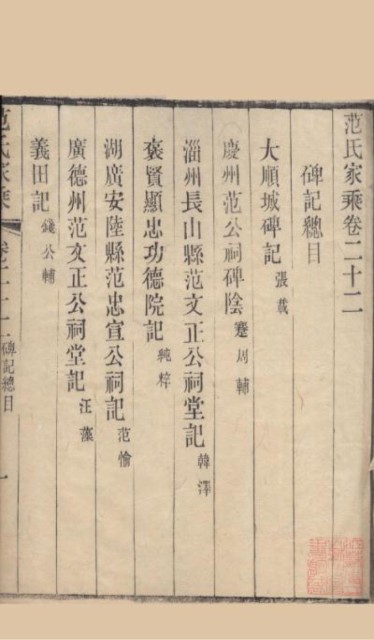 范氏家乘卷二十二
碑記總目
大順城碑記 張載
慶州范公祠碑陰 蹇周輔
淄州長山縣范文正公祠堂記 韓澤
褒賢顯忠功德院記 純粹
湖廣安陸縣范忠宣公祠記 范愉
廣德州范文正公祠堂記 汪藻
義田記 錢公輔
范氏家乘 卷二十二 碑記總目 一